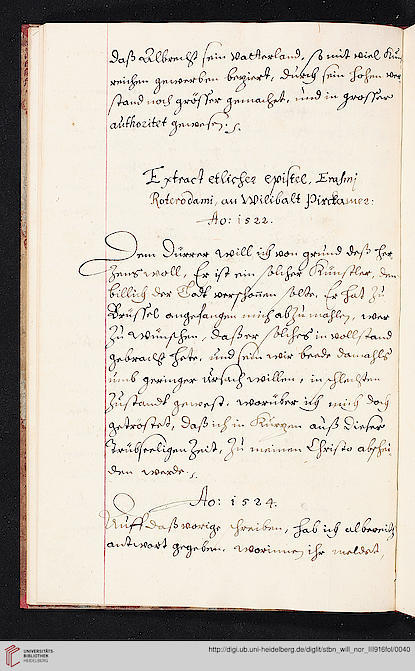 daß Albrecht sein Vatterland, so mit viel Kunst
reichen gewerben beziert, durch sein hohen ver
stand noch grösser gemachet, und in grosser
authoritet gewesen.
Extract etlicher epistel, Erasmj
Roterodami, an Wilibalt Pirckamer:
Ao: 1522.
Dem Dürrer will ich von grund deß her
zens woll, Er ist ein solcher Künstler, den
billich der Todt verschonen solte. Er hat zu
Brüssel angefangen mich abzumahlen, wer
zu wünschen, daß er solches in vollstand
gebracht hete, und sein wir beede damahls
umb geringer ursach willen, in schlechten
Zustandt gewest, worüber ich mich doch
getröstet, daß ich in Kurzen auß dieser
Trübseeligen Zeit, zu meinem Christo abschei
den werde.
Ao: 1524.
Auff daß vorige schreiben, hab ich albereit
antwort gegeben, worinnen ihr meldet,
UNIVERSITÄTS-
BIBLIOTHEK
HEIDELBERG
http://digi.ub.uni-heidelberg.de/diglit/stbn_will_nor_III916fol/0040